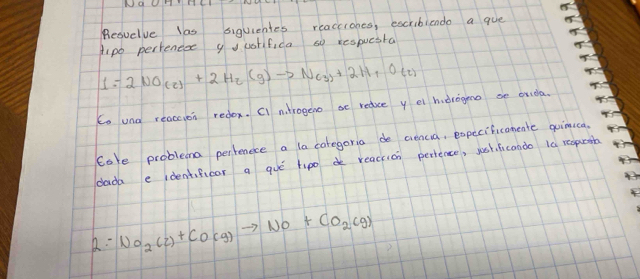 NaOH + HCl → NaCl
Resuelve las siguientes reacciones, escribiendo a que
tipo pertenece y justifica su respuesta
1.- 2 NO(c) + 2 H₂ (g) → N(g) + 2H₂ O(c)
Es una reacción redox. El nitrogeno se reduce y el hidrógeno se oxida.
Este problema pertenece a la categoria de ciencia, especificamente química,
dada e identificar a qué tipo de reacción pertence, justificando la respuesta
2.- No₂(c) + Co(g) → No + CO₂(g)